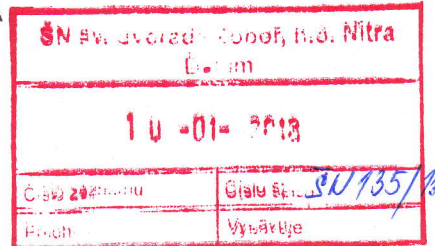 ŠN sv. Zobor, n.o. Nitra
Dátum
10 -01- 2013
Číslo záznamu Číslo spisu ŠN 135/13
Príloh Vybavuje